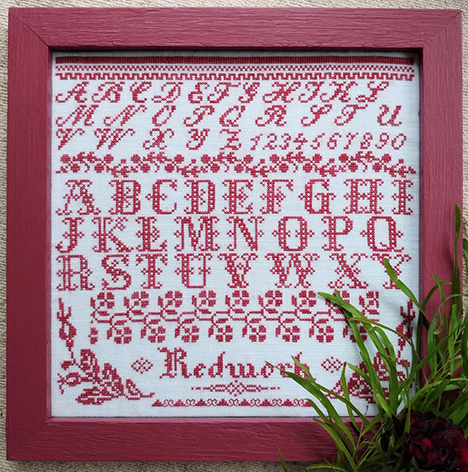 A B C D E F G H I K L
M N O P Q R S T U
V W X Y Z 1 2 3 4 5 6 7 8 9 0
A B C D E F G H I
J K L M N O P Q
R S T U V W X Y
Redwork